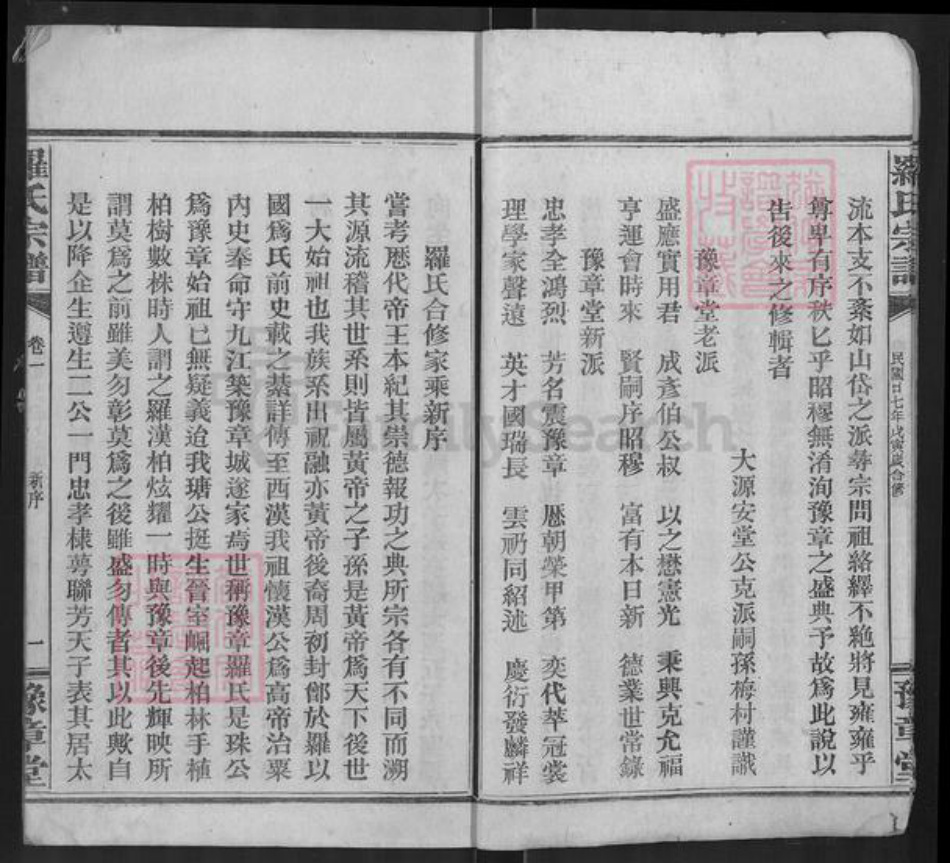 羅氏宗譜
民國廿七年戊寅歲合修
豫章堂
流本支不紊如山岱之派尋宗問祖絡繹不絶將見雍雍乎
尊卑有序秩匕乎昭穆無淆洵豫章之盛典予故爲此說以
告後來之修輯者
大源安堂公克派嗣孫梅村謹識
豫章堂老派
盛應實用君　成彥伯公叔　以之懋憲光　秉興克允福
亨運會時來　賢嗣序昭穆　富有本日新　德業世常錄
豫章堂新派
忠孝全鴻烈　芳名震豫章　歷朝榮甲第　奕代萃冠裳
理學家聲遠　英才國瑞長　雲礽同紹述　慶衍發麟祥
羅氏合修家乘新序
嘗考歷代帝王本紀其崇德報功之典所宗各有不同而溯
其源流稽其世系則皆屬黃帝之子孫是黃帝爲天下後世
一大始祖也我族系出祝融亦黃帝後裔周初封鄫於羅以
國爲氏前史載之綦詳傳至西漢我祖懷漢公爲高帝治粟
內史奉命守九江築豫章城遂家焉世稱豫章羅氏是珠公
爲豫章始祖已無疑義迨我瑭公挺生晉室崛起柏林手植
柏樹數株時人謂之羅漢柏炫耀一時與豫章後先輝映所
謂莫爲之前雖美勿彰莫爲之後雖盛勿傳者其以此歟自
是以降企生遵生二公一門忠孝棣萼聯芳天子表其居太
羅氏宗譜
卷一
新序
一
豫章堂
FamilySearch